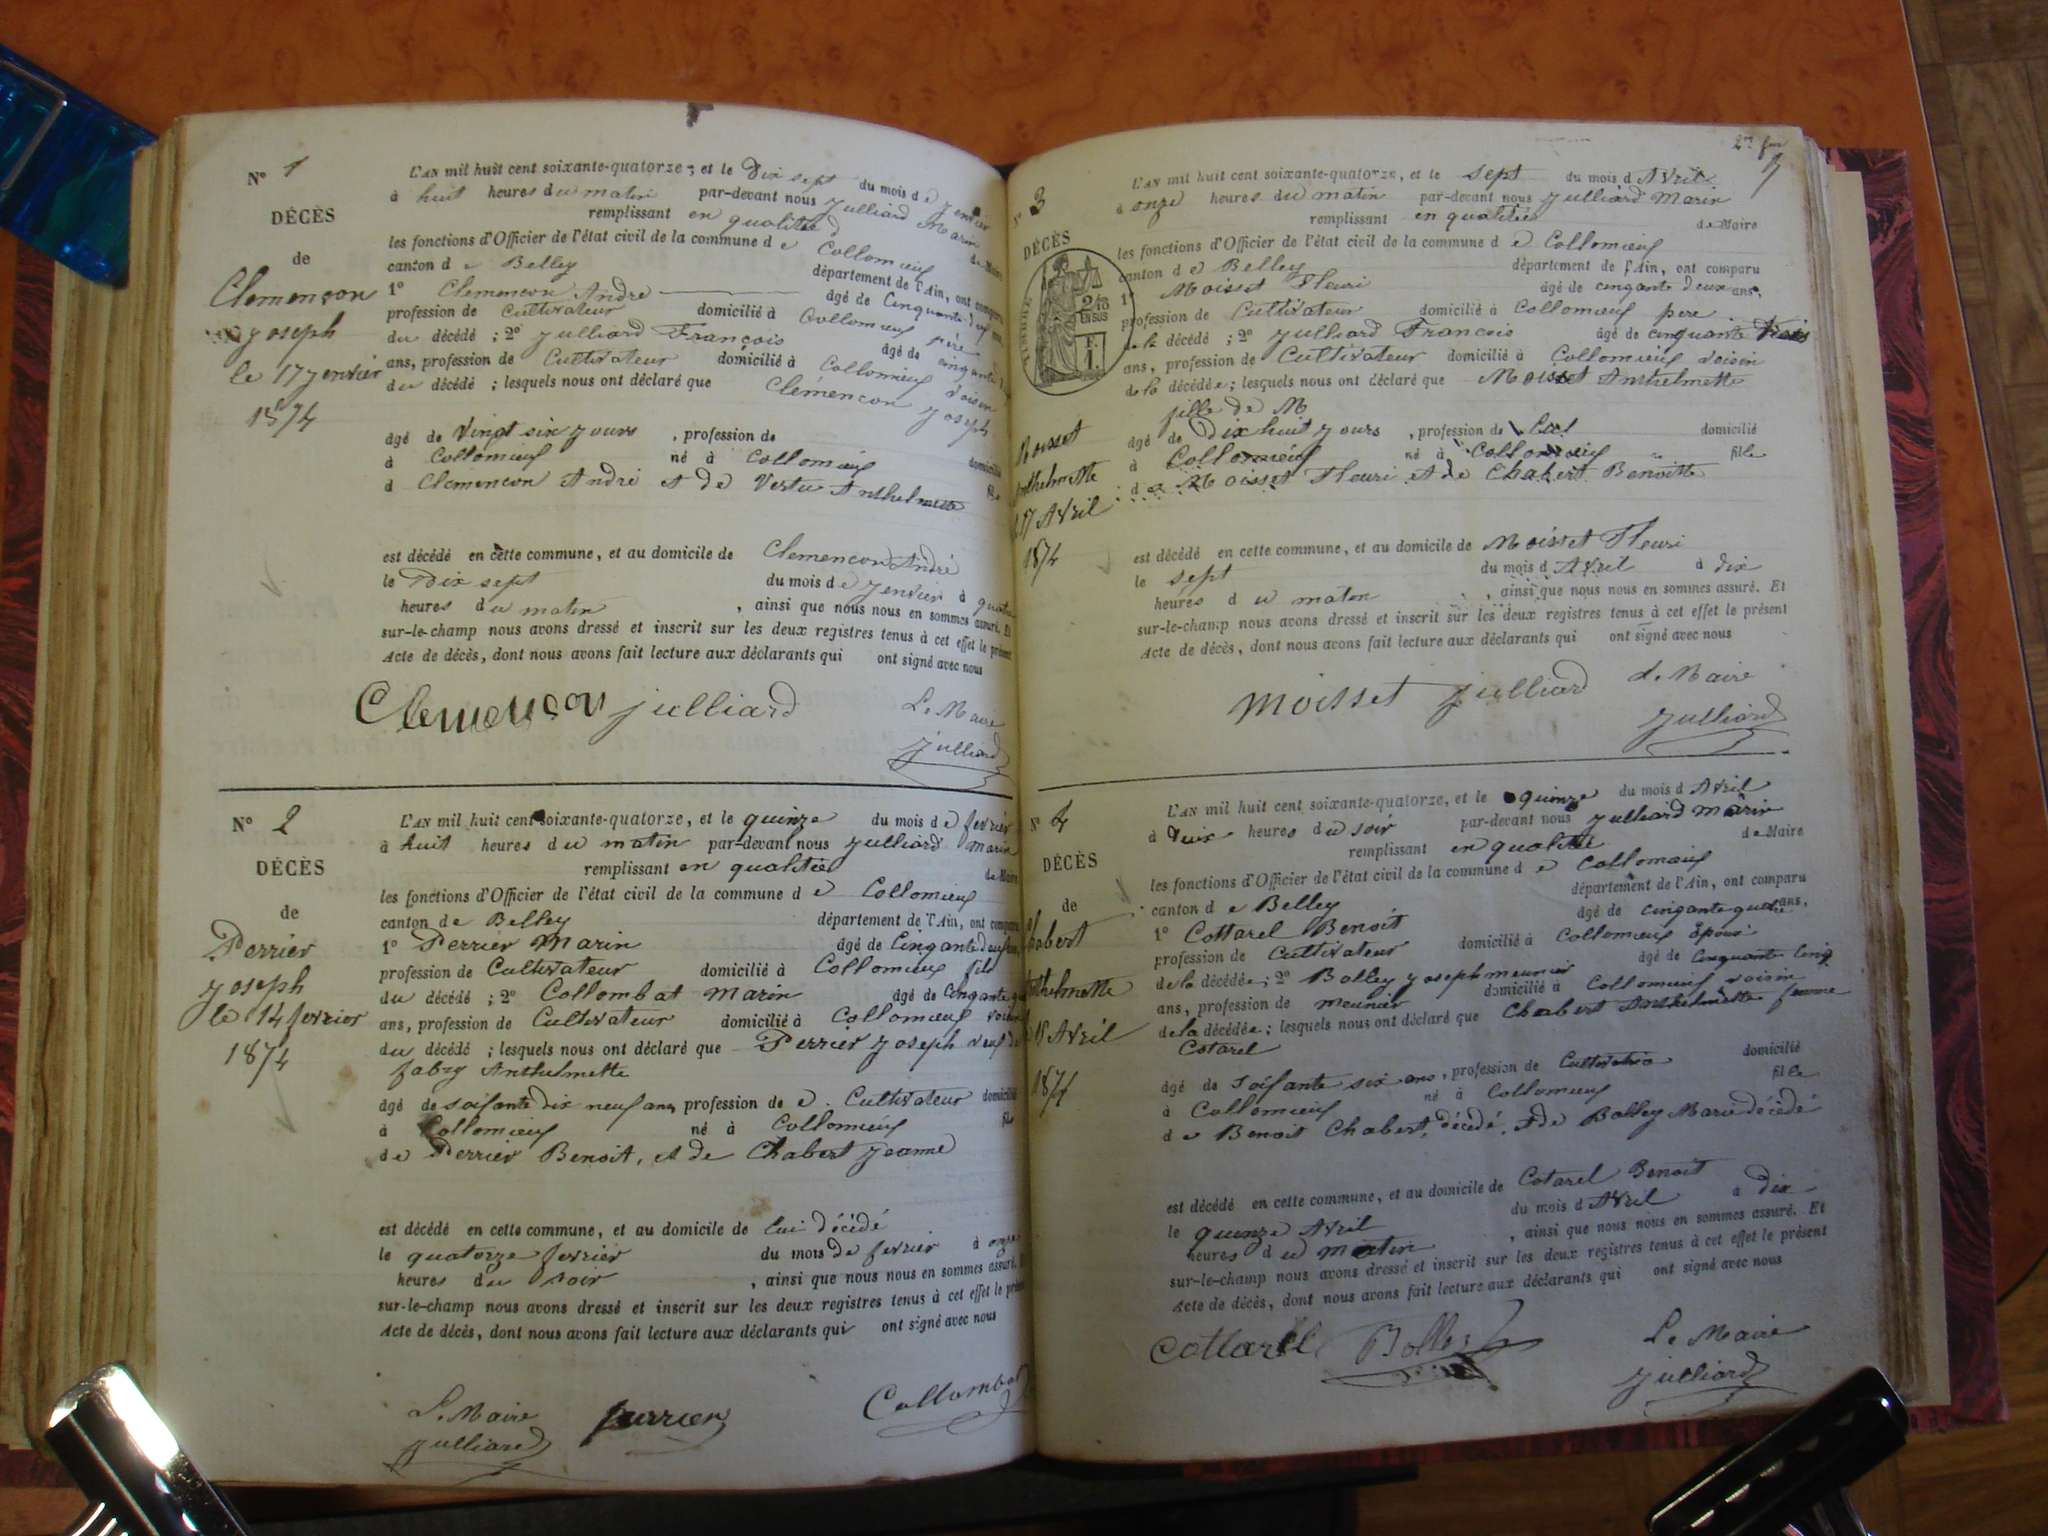 N° 1
DÉCÈS
de
Clemençon
Joseph
le 17 Jenvier
1874
L'AN mil huit cent soixante-quatorze, et le Dix sept du mois de Jenvier
à huit heures du matin par-devant nous Julliard Marin
remplissant en qualitée de Maire
les fonctions d'Officier de l'état civil de la commune de Collomieu
canton de Belley département de l'Ain, ont comparu
1° Clemencon André âgé de Cinquante
profession de Cultivateur domicilié à Collomieu père
du décédé ; 2° Julliard François âgé de cinquante
ans, profession de Cultivateur domicilié à Collomieu voisin
du décédé ; lesquels nous ont déclaré que Clémencon Joseph
âgé de Vingt six jours , profession de
à Collomieu né à Collomieu domicilié
d Clemencon André et de Vertu Anthelmette fils
est décédé en cette commune, et au domicile de Clemencon André
le Dix sept du mois de Jenvier à quatre
heures du matin , ainsi que nous nous en sommes assuré. Et
sur-le-champ nous avons dressé et inscrit sur les deux registres tenus à cet effet le présent
Acte de décès, dont nous avons fait lecture aux déclarants qui ont signé avec nous
Clemençon Julliard Le Maire
Julliard
N° 2
DÉCÈS
de
Perrier
Joseph
le 14 fevrier
1874
L'AN mil huit cent soixante-quatorze, et le quinze du mois de fevrier
à huit heures du matin par-devant nous Julliard Marin
remplissant en qualitée de Maire
les fonctions d'Officier de l'état civil de la commune de Collomieu
canton de Belley département de l'Ain, ont comparu
1° Perrier Marin âgé de Cinquante deux ans
profession de Cultivateur domicilié à Collomieu fils
du décédé ; 2° Collombat Marin âgé de Cinquante
ans, profession de Cultivateur domicilié à Collomieu voisin
du décédé ; lesquels nous ont déclaré que Perrier Joseph veuf de
fabry Anthelmette
âgé de soifante dix neuf ans, profession de Cultivateur domicilié
à Collomieu né à Collomieu fils
de Perrier Benoit, et de Chabert Jeanne
est décédé en cette commune, et au domicile de lui décédé
le quatorze fevrier du mois de fevrier à onze
heures du soir , ainsi que nous nous en sommes assuré. Et
sur-le-champ nous avons dressé et inscrit sur les deux registres tenus à cet effet le présent
Acte de décès, dont nous avons fait lecture aux déclarants qui ont signé avec nous
Le Maire perrier Collombat
Julliard
N° 3
DÉCÈS
TIMBRE
Moisset
Anthelmette
Avril
1874
L'AN mil huit cent soixante-quatorze, et le sept du mois d Avril
à onze heures du matin par-devant nous Julliard Marin
remplissant en qualitée de Maire
les fonctions d'Officier de l'état civil de la commune de Collomieu
canton de Belley département de l'Ain, ont comparu
1° Moisset Fleuri âgé de cinquante deux ans,
profession de Cultivateur domicilié à Collomieu pere
de la décédé ; 2° Julliard François âgé de cinquante trois
ans, profession de Cultivateur domicilié à Collomieu voisin
de la décédée ; lesquels nous ont déclaré que Moisset Anthelmette
fille de M
âgé de Dix huit jours , profession de domicilié
à Collomieu né à Collomieu fille
de Moisset Fleuri et de Chabert Benoitte
est décédé en cette commune, et au domicile de Moisset Fleuri
le sept du mois d Avril à dix
heures du maten , ainsi que nous nous en sommes assuré. Et
sur-le-champ nous avons dressé et inscrit sur les deux registres tenus à cet effet le présent
Acte de décès, dont nous avons fait lecture aux déclarants qui ont signé avec nous
Moisset Julliard Le Maire
Julliard
N° 4
DÉCÈS
de
Chabert
Anthelmette
15 Avril
1874
L'AN mil huit cent soixante-quatorze, et le quinze du mois d Avril
à Deux heures du soir par-devant nous Julliard Marin
remplissant en qualité de Maire
les fonctions d'Officier de l'état civil de la commune de Collomieu
canton de Belley département de l'Ain, ont comparu
1° Cottarel Benoit âgé de cinquante quatre ans,
profession de Cultivateur domicilié à Collomieu Epoux
de la décédée ; 2° Bolley Joseph meunier âgé de cinquante cinq
ans, profession de meunier domicilié à Collomieu voisin
de la décédée ; lesquels nous ont déclaré que Chabert Anthelmette femme
Cotarel
âgé de soifante six ans, profession de Cultivatrice domicilié
à Collomieu né à Collomieu fille
de Benoit Chabert, décédé, et de Bolley Marie décédé
est décédé en cette commune, et au domicile de Cotarel Benoit
le quinze Avril du mois d Avril à dix
heures du matin , ainsi que nous nous en sommes assuré. Et
sur-le-champ nous avons dressé et inscrit sur les deux registres tenus à cet effet le présent
Acte de décès, dont nous avons fait lecture aux déclarants qui ont signé avec nous
Cottarel Bolley Le Maire
Julliard